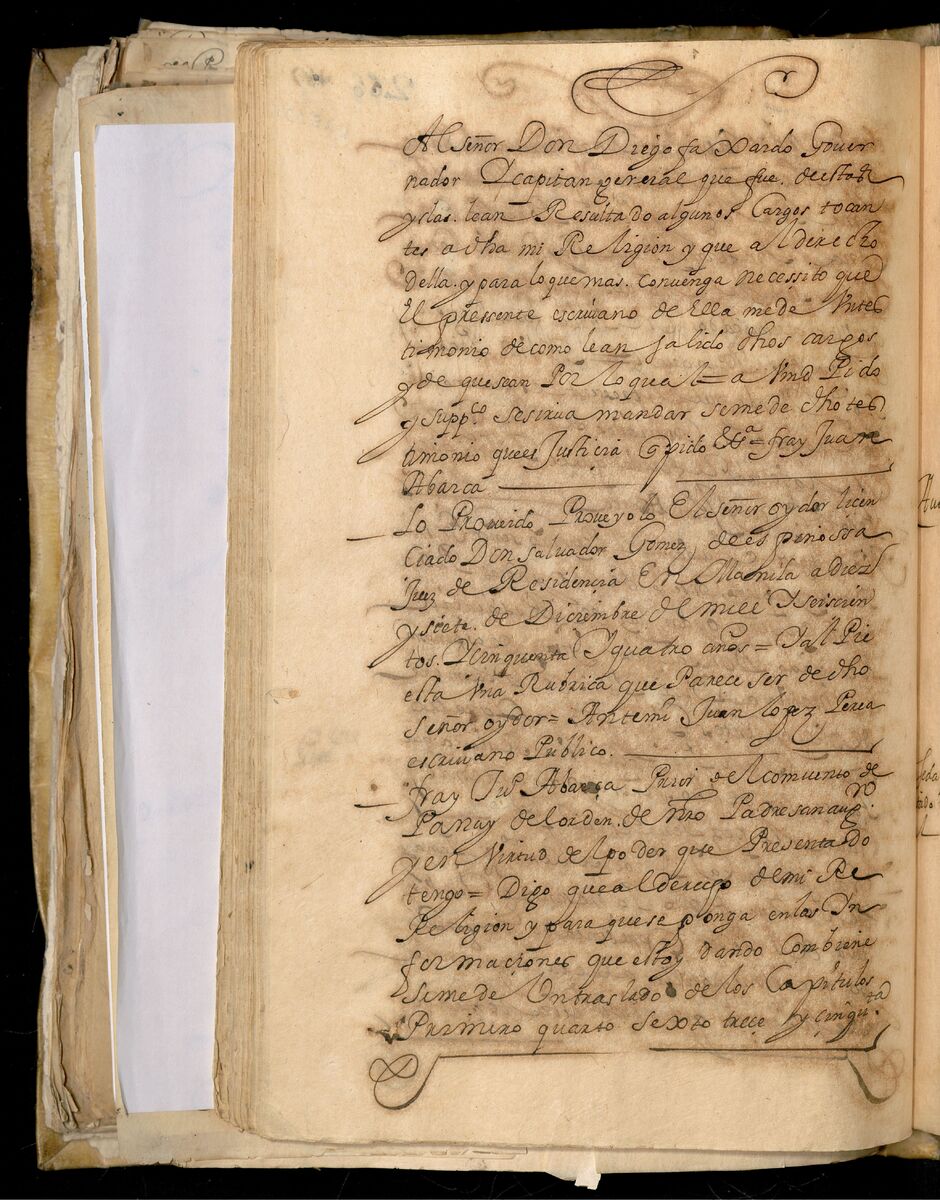 Al señor Don Diego faxardo Gover
nador Y capitan general que fue. destas
yslas. lean Resultado algunos Cargos tocan
tes a dha mi Religion y que al derecho
della. y para lo que mas. convenga necessito que
El pressente escrivano de Ella me de Vntes
timonio de como lean salido dhos cargos
y de que sean Por lo qual = a Vmd Pido
y supp.co se sirva mandar se me de dho tes
timonio que es Justicia q pido &a = fray Juan
Abarca
Lo Proveido Proveyolo El señor oydor licen
ciado Don salvador Gomez de espinossa
Juez de Residencia En Manila a diez
y siete. de Diciembre de mill Y seiscien
tos. Y cinquenta Y quatro años = Y al Pie
esta Vna Rubrica que Parece ser de dho
señor oydor = Antemi Juan lopez Perea
escrivano Publico.
fray Ju.o Abarca Prior del comvento de
Panay del orden. de nro Padre san augn.o
y en Virtud del poder que Presentado
tengo = Digo que al derecho de mi Re
Religion y para que se ponga en las Yn
formaciones que estoy dando Combiene
se me de Un traslado de los Capitulos
Primero quarto sexto trece y cinqu.ta